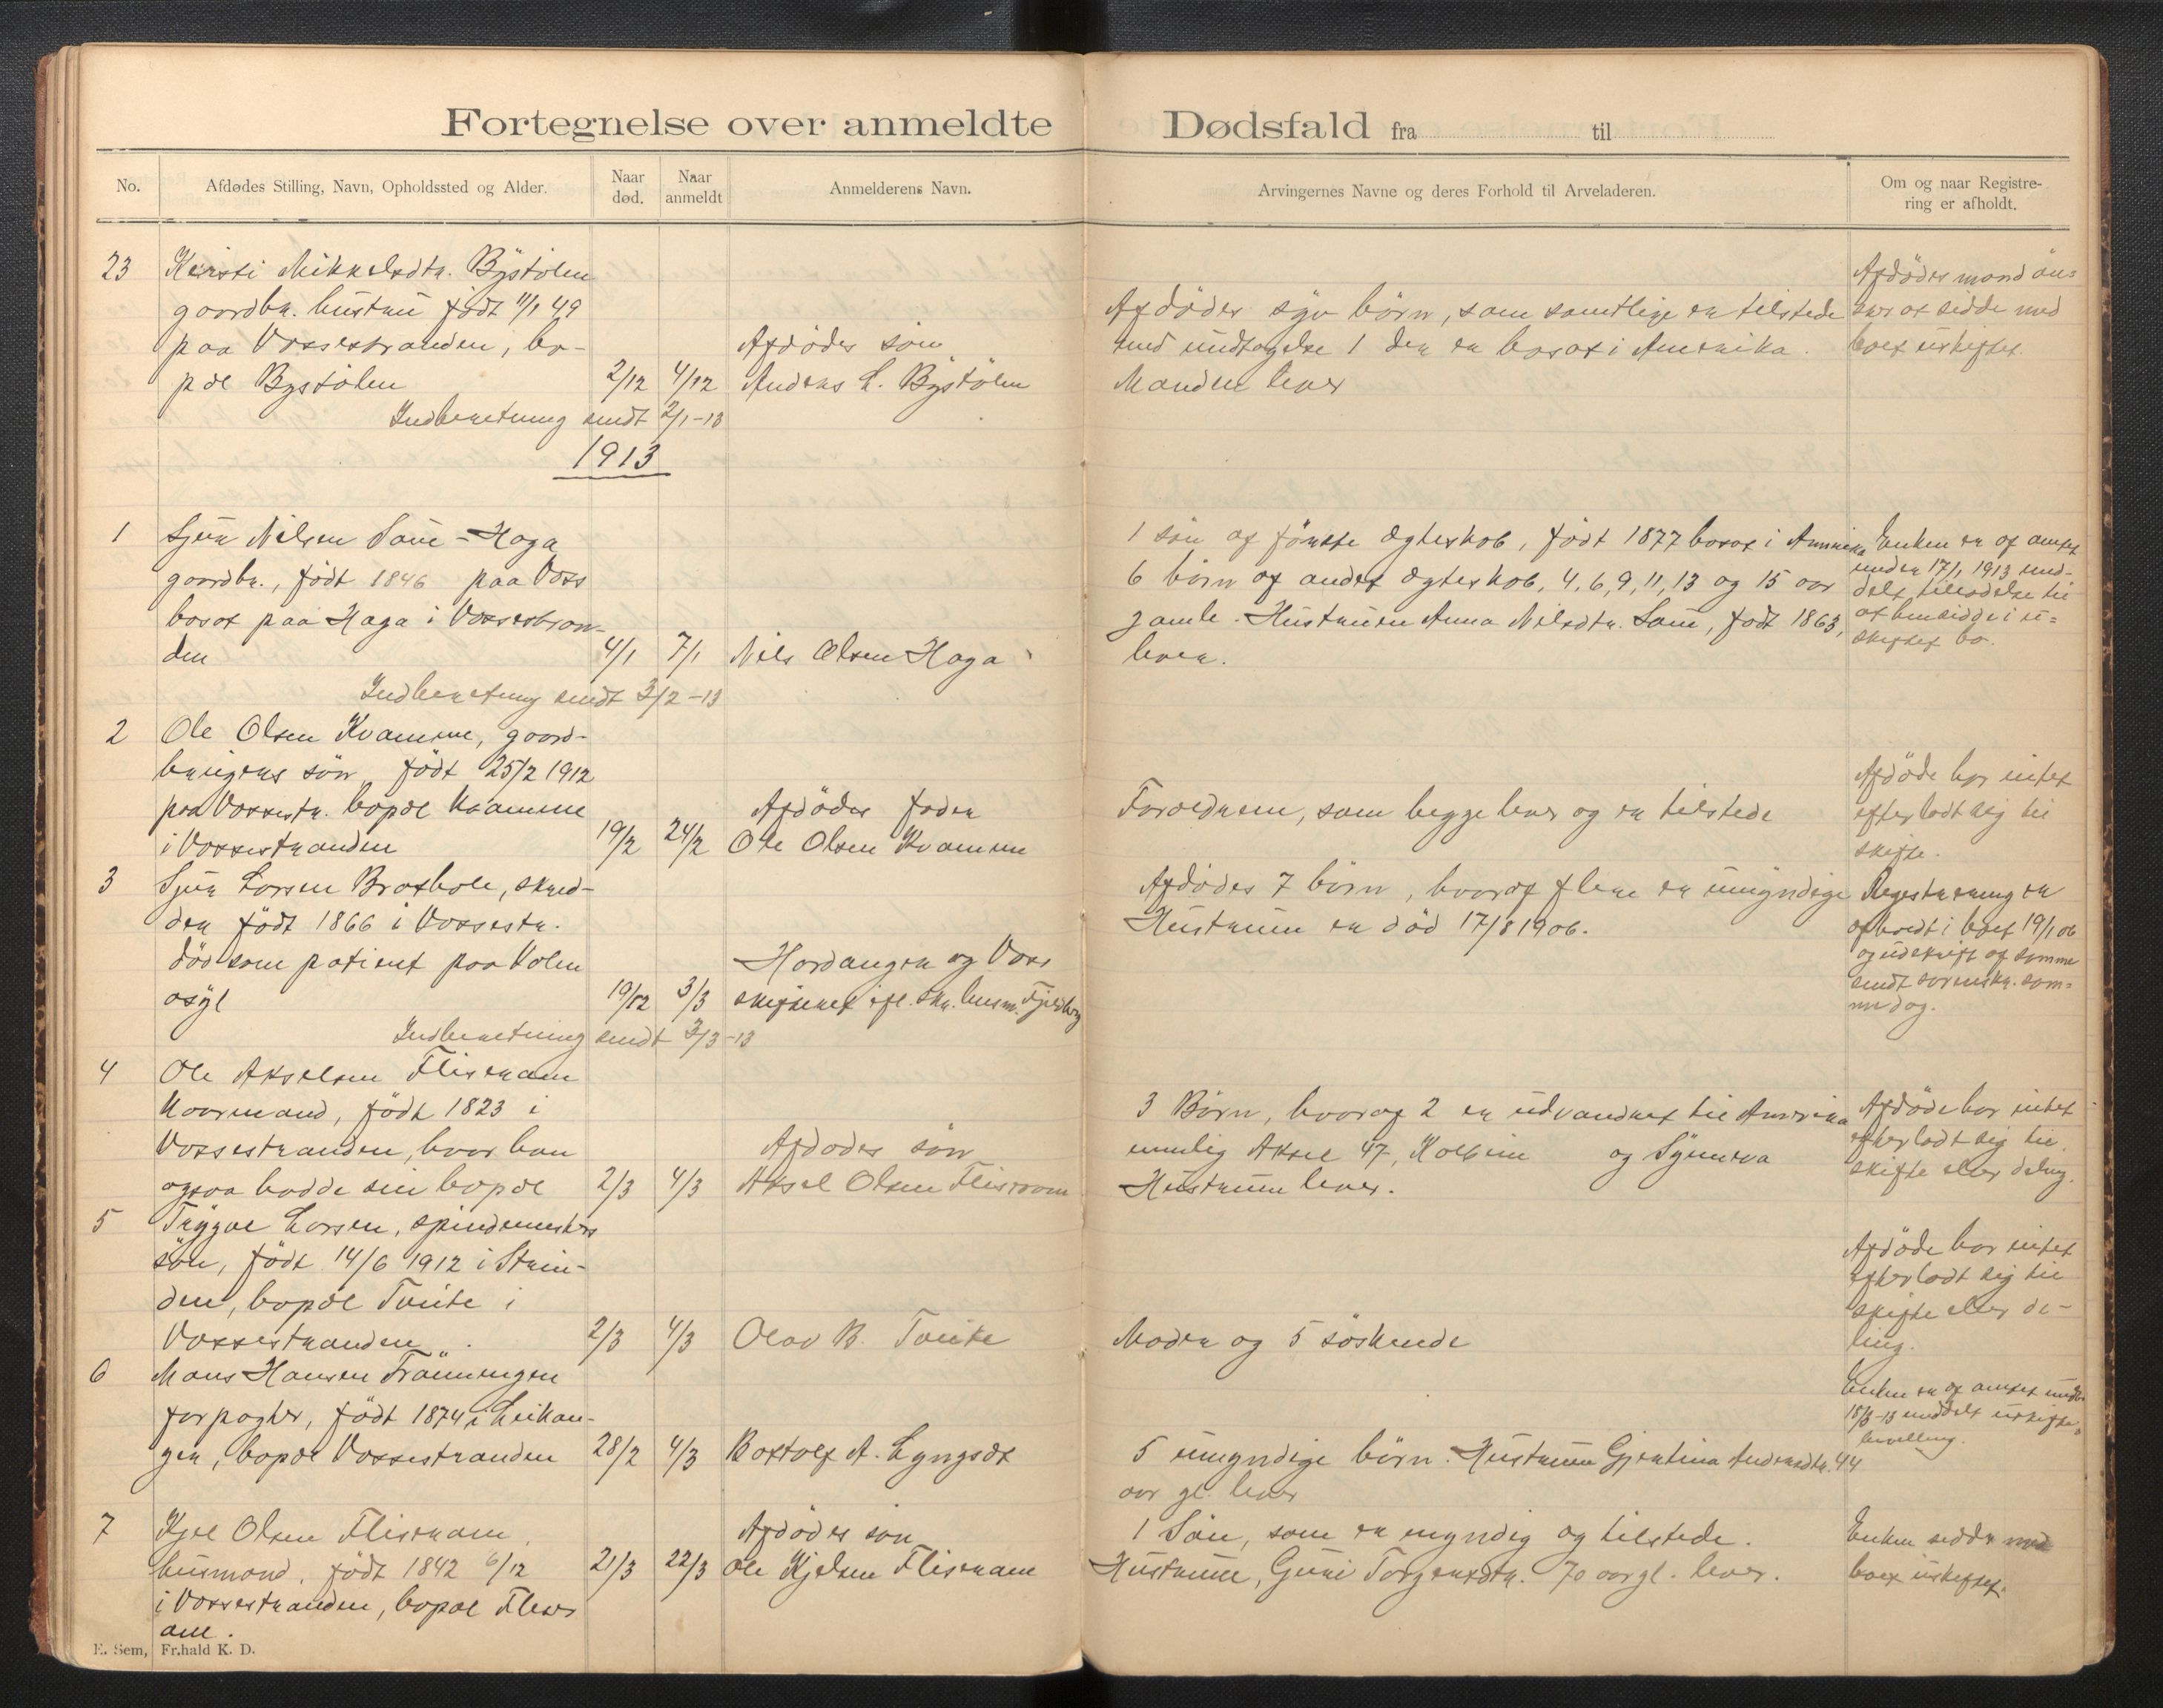 Fortegnelse over anmeldte Dødsfald fra til
No.
Afdødes Stilling, Navn, Opholdssted og Alder.
Naar død.
Naar anmeldt
Anmelderens Navn.
Arvingernes Navne og deres Forhold til Arveladeren.
Om og naar Registrering er afholdt.
23
Kristi Mikkelsdtr. Bystölen
gaardbr. hustru född 11/1 49
paa Vossestranden, bo-
pæl Bystölen
2/12
4/12
Afdödes sön
Anders L. Bystölen
Afdödes syv börn, som samtlige er tilstede
med undtagelse 1 der er bosat i Amerika.
Manden lever
Afdödes mand ön=
sker at sidde med
boet uskiftet.
Indberetning sendt 2/1-13
1913
1
Sjur Nilsen Saue-Haga
gaardbr., födt 1846 paa Voss
bosat paa Haga i Vossestran-
den
4/1
7/1
Nils Olsen Haga
1 sön af förste ægteskab, födt 1877 bosat i Amerika
6 börn af andet ægteskab, 4, 6, 9, 11, 13 og 15 aar
gamle. Hustruen Anna Nilsdtr. Saue, födt 1863,
lever.
Enken er af amtet
under 17/1 1913 med-
delt tilladelse til
at hensidde i u=
skiftet bo.
Indberetning sendt 3/2-13
2
Ole Olsen Kvamme, gaard-
brugers sön, födt 25/2 1912
paa Vossestr. bopæl Kvamme
i Vossestranden
19/2
24/2
Afdödes fader
Ole Olsen Kvamme
Forældrene, som begge lever og er tilstede
Afdöde har intet
efterladt sig til
skifte.
3
Sjur Larsen Brathole, skred-
der födt 1866 i Vossestr.
död som patient paa Valen
asyl
19/12
3/3
Hardanger og Voss
skifteret ifl. skr. lensm. Fjeldberg
Afdödes 7 börn, hvoraf flere er umyndige
Hustruen er död 17/8 1906.
Registrering er
afholdt i boet 19/1 06
og udskrift af samme
sendt sorenskr. sam=
me dag.
Indberetning sendt 3/3-13
4
Ole Akselsen Flisram
Kaarmand, födt 1823 i
Vossestranden, hvor han
ogsaa hadde sin bopæl
2/3
4/3
Afdödes sön
Aksel Olsen Flisram
3 Börn, hvoraf 2 er udvandret til Amerika
nemlig Aksel 47, Kolbein og Synneva
Hustruen lever.
Afdöde har intet
efterladt sig til
skifte eller deling.
5
Trygve Larsen, spindemesters
sön, födt 14/6 1912 i Strin-
den, bopæl Tvinte i
Vossestranden.
2/3
4/3
Olav B. Tvinte
Moder og 5 söskende
Afdöde har intet
efterladt sig til
skifte eller de-
ling.
6
Mons Hansen Frönningen
forpagter, födt 1874 i Leikan-
ger, bopæl Vossestranden
28/2
4/3
Botolf A. Lyngsdt
5 umyndige börn. Hustruen Gjertina Andersdtr. 44
aar gl. lever
Enken er af amtet under
18/3-13 meddelt uskifte-
bevilling.
7
Kjel Olsen Flisram,
husmand, födt 1842 6/12
i Vossestranden, bopæl Flisr
am.
21/3
22/3
Afdödes sön
Ole Kjelsen Flisram
1 Sön, som er myndig og tilstede.
Hustruen, Guri Torgersdtr. 70 aar gl. lever.
Enken sidder med
boet uskiftet.
E. Sem, Fr.hald K. D.